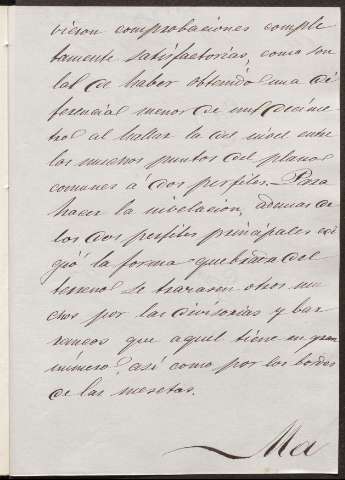 vieron comprobaciones comple
tamente satisfactorias, como son
tal de haber obtenido una di
ferencia menor de un decíme
tro al hallar la del nivel entre
los mismos puntos del plano
comunes á dos perfiles. Para
hacer la nivelacion, ademas de
los dos perfiles principales exi
gió la forma quebrada del
terreno se trazasen otros mu
chos por las divisorias y bar
rancos que aquel tiene en gran
número, así como por los bordes
de las mesetas.
Ma